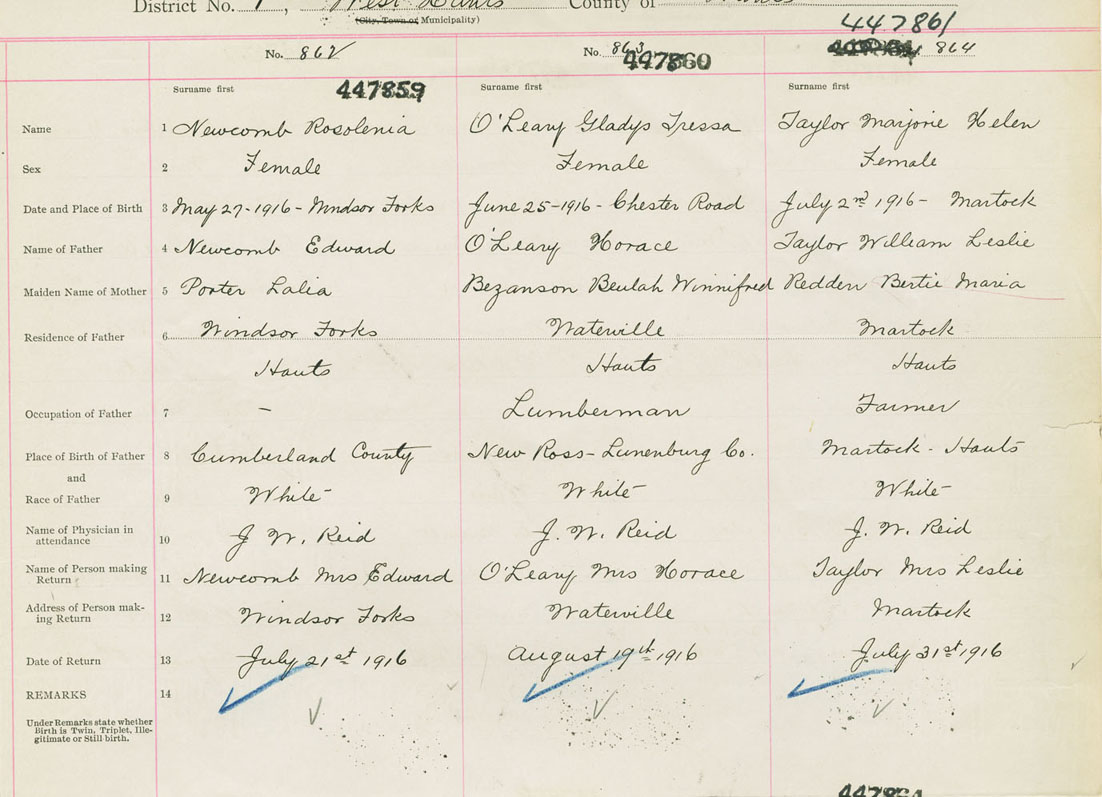 District No. 1, West Hants County of Hants
(City, Town or Municipality)
447861
No. 862 No. 863 864
447859 447860
Surname first Surname first Surname first
Name 1 Newcomb Rosolenia O'Leary Gladys Tressa Taylor Marjorie Helen
Sex 2 Female Female Female
Date and Place of Birth 3 May 27-1916- Windsor Forks June 25-1916- Chester Road July 2nd 1916- Martock
Name of Father 4 Newcomb Edward O'Leary Horace Taylor William Leslie
Maiden Name of Mother 5 Porter Lalia Bezanson Beulah Winnifred Redden Bertie Maria
Residence of Father 6 Windsor Forks Waterville Martock
Hants Hants Hants
Occupation of Father 7 - Lumberman Farmer
Place of Birth of Father 8 Cumberland County New Ross- Lunenburg Co. Martock - Hants
and
Race of Father 9 White White White
Name of Physician in attendance 10 J W. Reid J. W. Reid J. W. Reid
Name of Person making Return 11 Newcomb Mrs Edward O'Leary Mrs Horace Taylor Mrs Leslie
Address of Person mak-ing Return 12 Windsor Forks Waterville Martock
Date of Return 13 July 21st 1916 August 19th 1916 July 31st 1916
REMARKS 14
Under Remarks state whether
Birth is Twin, Triplet, Ille-
gitimate or Still-birth.